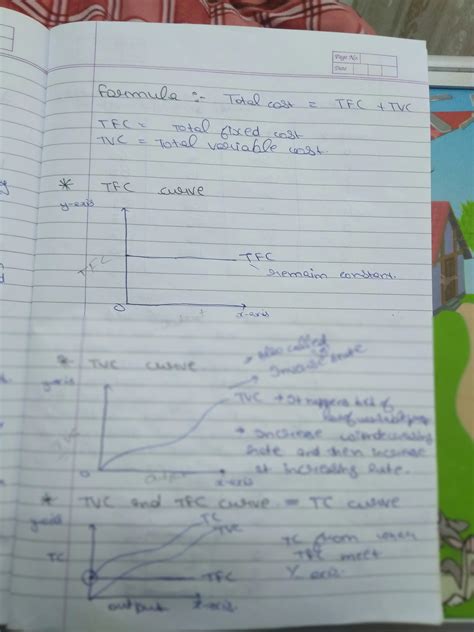 Page No.
Date
Formula :- Total cost = TFC + TVC
TFC = Total fixed cost
TVC = Total variable cost.
* TFC curve
y-axis
TFC
TFC
remain constant.
O
x-axis
* TVC curve
also called
y-axis
TVC
Increase
rate and then increase
at increasing rate.
O
output
x-axis
* TVC and TFC curve = TC curve
y-axis
TC
TVC
TC
TC from where
TFC meet
Y axis.
TFC
output
x-axis